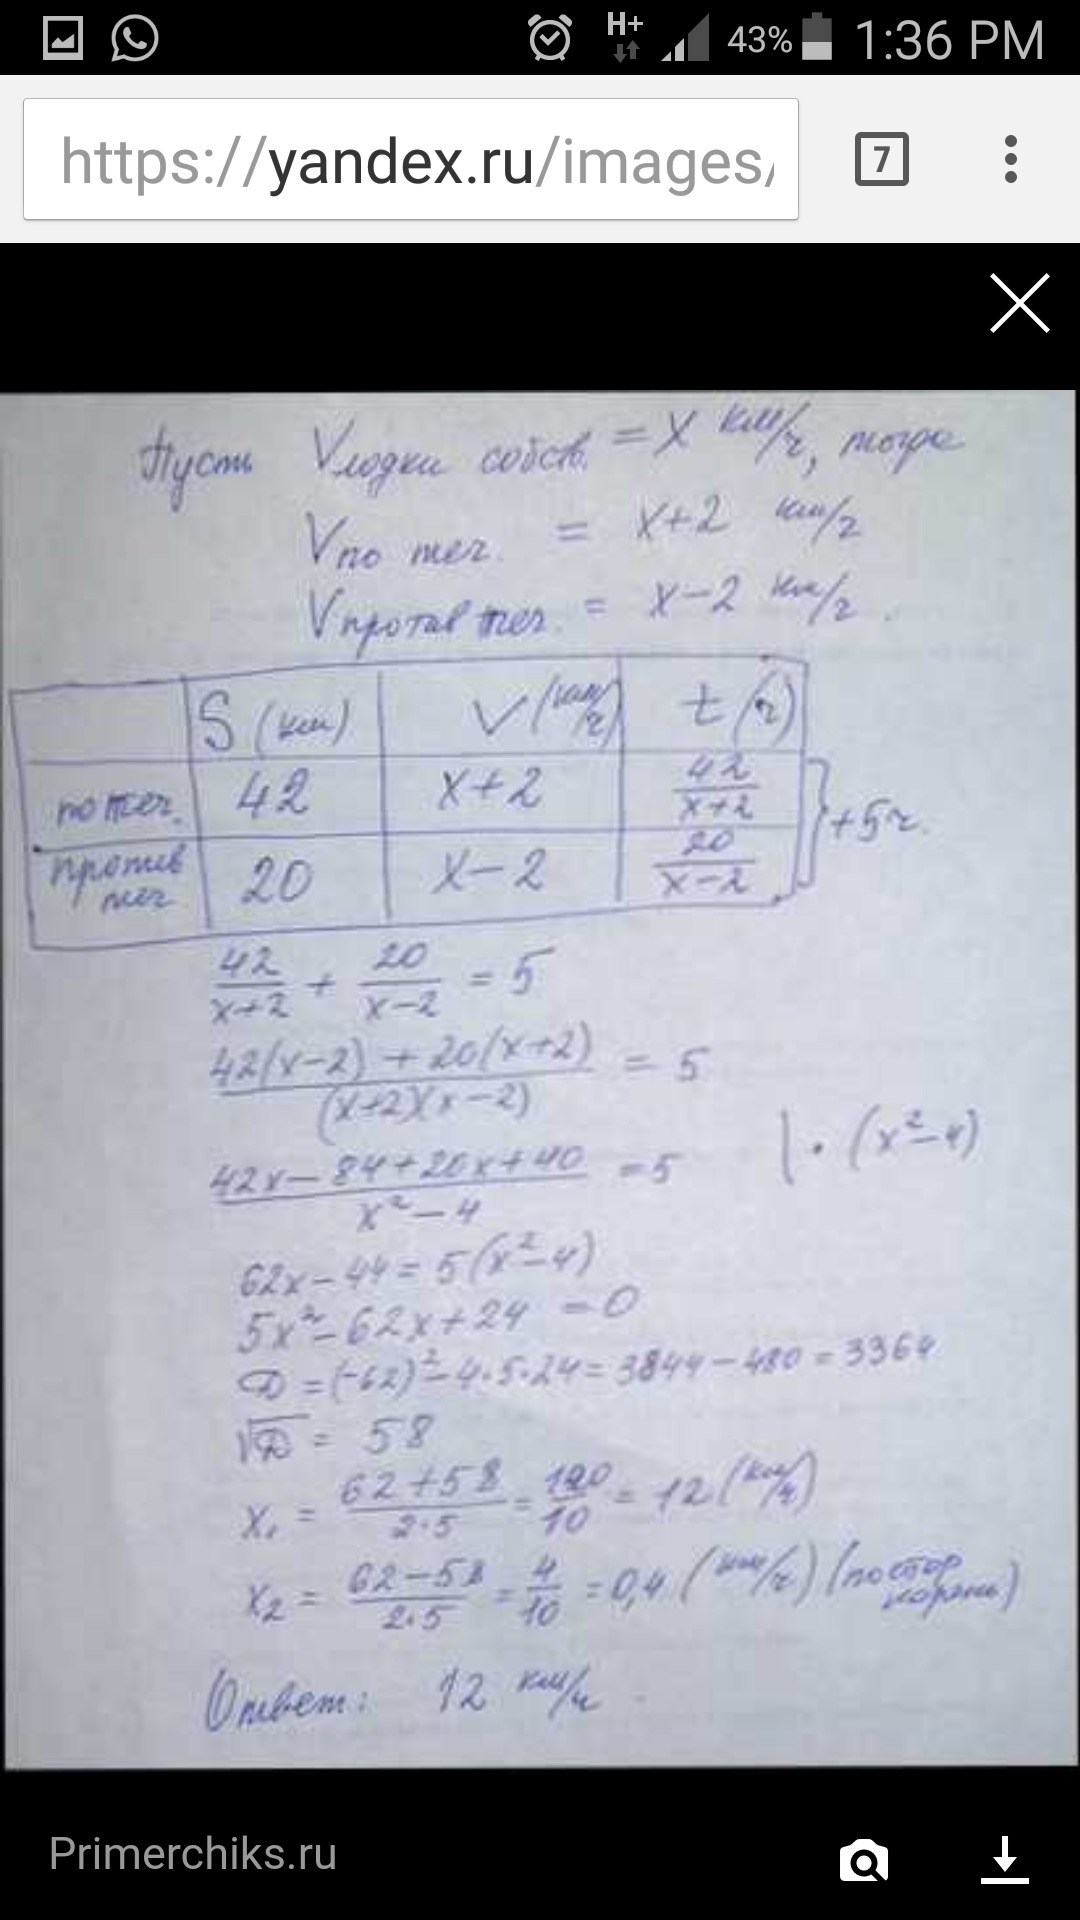 H+ 43% 1:36 PM
https://yandex.ru/images/ 7
Пусть Vлодки собств. = x км/ч, тогда
Vпо теч. = x+2 км/ч
Vпротив теч. = x-2 км/ч.
S (км) V (км/ч) t (ч)
по теч. 42 x+2 42/(x+2)
+5ч.
против теч 20 x-2 20/(x-2)
42/(x+2) + 20/(x-2) = 5
(42(x-2) + 20(x+2))/((x+2)(x-2)) = 5
(42x-84+20x+40)/(x²-4) = 5 | · (x²-4)
62x-44=5(x²-4)
5x²-62x+24 =0
D=(-62)²-4·5·24=3844-480=3364
√D = 58
x₁ = (62+58)/(2·5) = 120/10 = 12 (км/ч)
x₂ = (62-58)/(2·5) = 4/10 = 0,4 (км/ч) (постор корень)
Ответ: 12 км/ч.
Primerchiks.ru